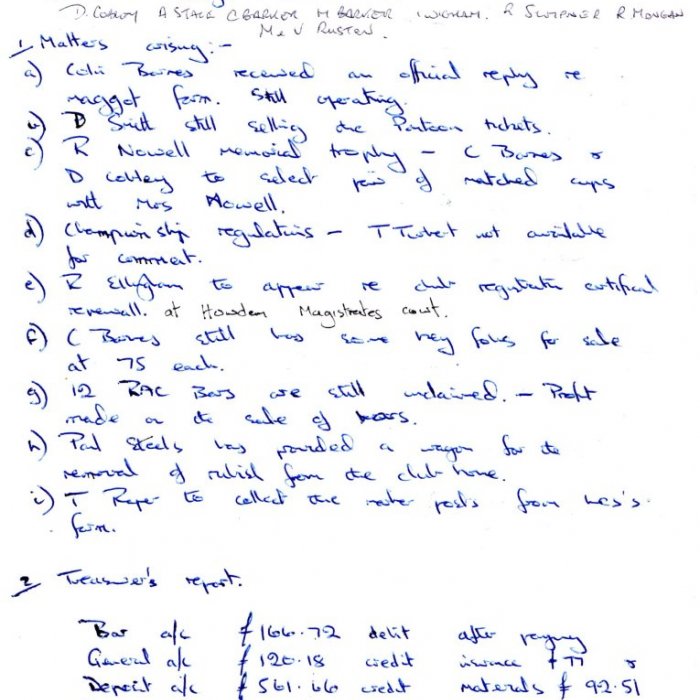 D. Cobley A Stack C Barker M Barker I Wigham. R R Morgan
M & V Rusten.
1 Matters arising:-
a) Colin Barnes received an official reply re
maggot farm. Still operating.
b) D Smith still selling the Pontoon tickets.
c) R Nowell memorial trophy - C Barnes &
D Cobley to select pair of matched cups
with Mrs Nowell.
d) Championship regulations - T not available
for comment.
e) R to appear re club registration certificate
renewall. at Howden Magistrates court.
f) C Barnes still has some key fobs for sale
at 75 each.
g) 12 RAC Bars are still unclaimed. - Profit
made on the sale of bars.
h) Paul Steels has provided a wagon for the
removal of rubish from the club house.
i) T Roper to collect the marker posts from Les's
farm.
2 Treasurer's report.
Bar a/c £166.72 debit after paying
General a/c £120.18 credit insurance £77 &
Deposit a/c £561.66 credit materials £92.51